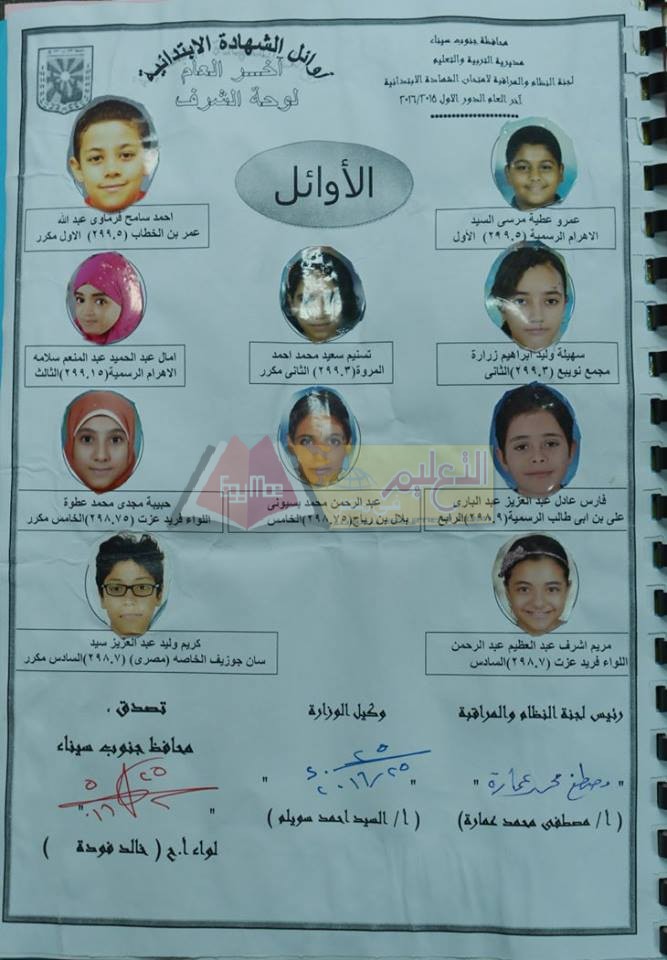 محافظة جنوب سيناء
مديرية التربية والتعليم
لجنة النظام والمراقبة لامتحان الشهادة الابتدائية
آخر العام الدور الاول ٢٠١٦/٢٠١٥
أوائل الشهادة الابتدائية
آخر العام
لوحة الشرف
الأوائل
عمرو عطية مرسى السيد
الاهرام الرسمية (٢٩٩.٥) الأول
احمد سامح فرماوى عبد الله
عمر بن الخطاب (٢٩٩.٥) الاول مكرر
سهيلة وليد ابراهيم زرارة
مجمع نويبع (٢٩٩.٣) الثانى
تسنيم سعيد محمد احمد
المروة (٢٩٩.٣) الثانى مكرر
امال عبد الحميد عبد المنعم سلامه
الاهرام الرسمية (٢٩٩.١٥) الثالث
فارس عادل عبد العزيز عبد البارى
على بن ابى طالب الرسمية (٢٩٨.٩) الرابع
عبد الرحمن محمد بسيونى
بلال بن رباح (٢٩٨.٧٥) الخامس
حبيبة مجدى محمد عطوة
اللواء فريد عزت (٢٩٨.٧٥) الخامس مكرر
التعليم
مريم اشرف عبد العظيم عبد الرحمن
اللواء فريد عزت (٢٩٨.٧) السادس
كريم وليد عبد العزيز سيد
سان جوزيف الخاصه (مصرى) (٢٩٨.٧) السادس مكرر
رئيس لجنة النظام والمراقبة
وكيل الوزارة
تصدق ،
محافظ جنوب سيناء
" مصطفى محمد عمارة "
(أ/ مصطفى محمد عمارة)
(أ/ السيد احمد سويلم)
لواء أ.ح ( خالد فودة )